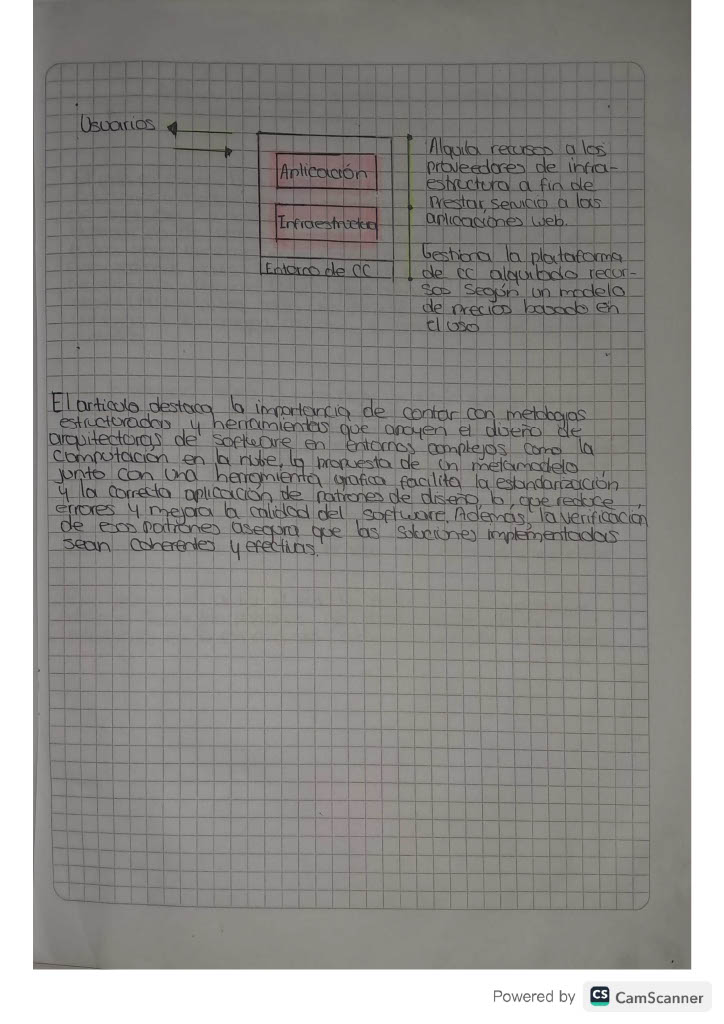 Usuarios
Aplicación
Infraestructura
Entorno de CC
Alquila recursos a los
proveedores de infra-
estructura a fin de
Prestar, servicio a las
aplicaciones web.
Gestiona la plataforma
de CC alquilado recur-
sos según un modelo
de precios basado en
el uso
El articulo destaca la importancia de contar con
estructurados y herramientas que apoyen el diseño de
arquitectoras de software en entornos complejos como la
computación en la nube, la propuesta de un metamodelo
junto con una herramienta grafica facilita la estandarización
y la correcta aplicación de patrones de diseño, lo, que reduce
errores y mejora la calidad del software. Además, la verificación
de esos patrones asegura que las soluciones implementadas
sean coherentes y efectivas.
Powered by CS CamScanner